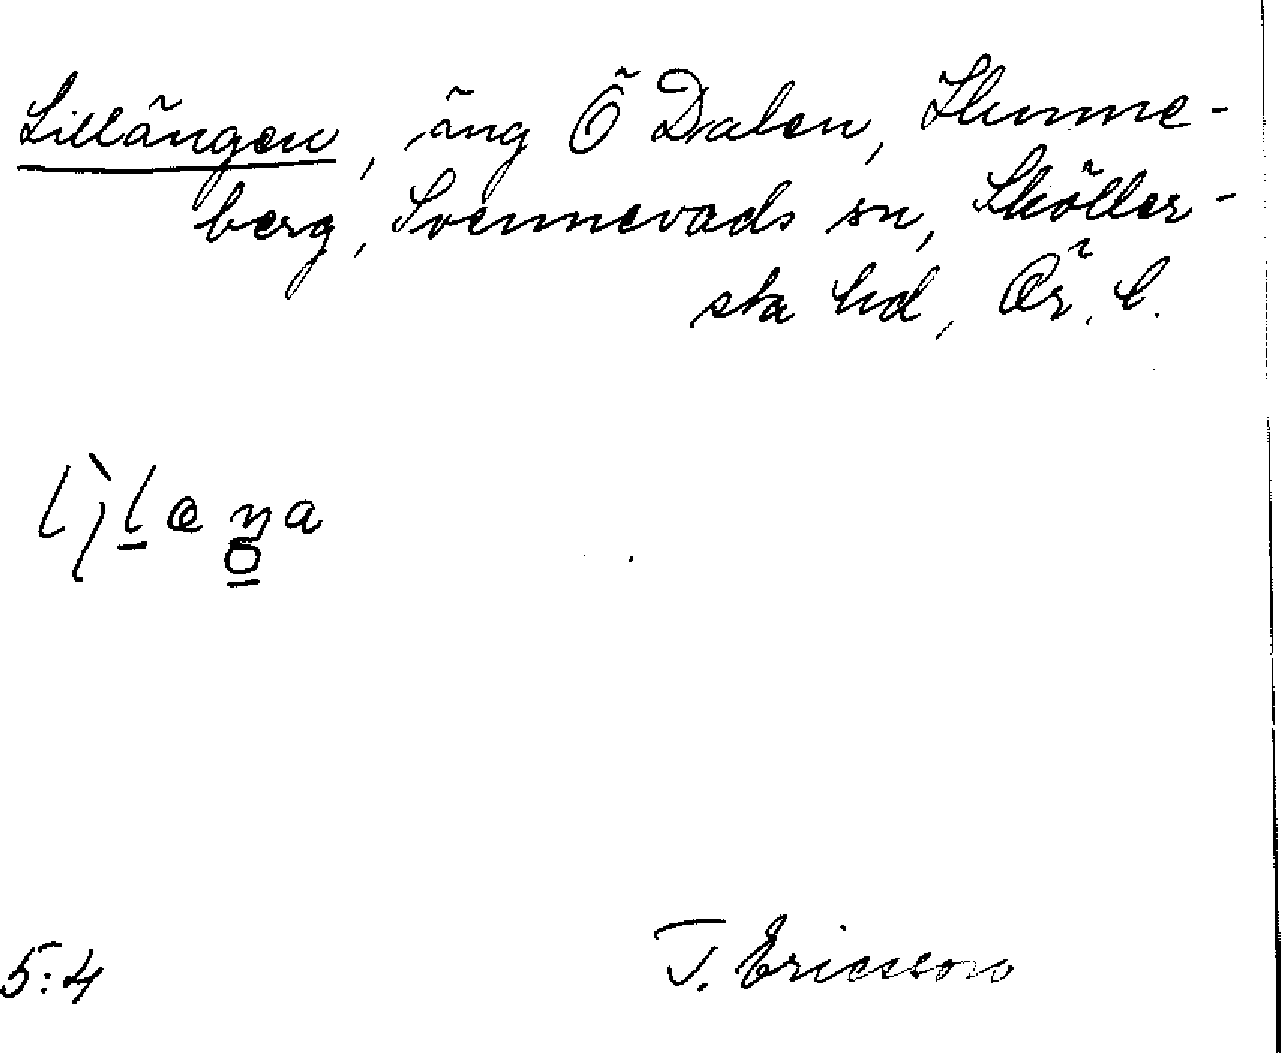 Lillängen, äng Ö Dalen, Skinne-
berg, Svennevads sn, Sköller-
sta hd, Ör. l.
5:4
T. Ericsson